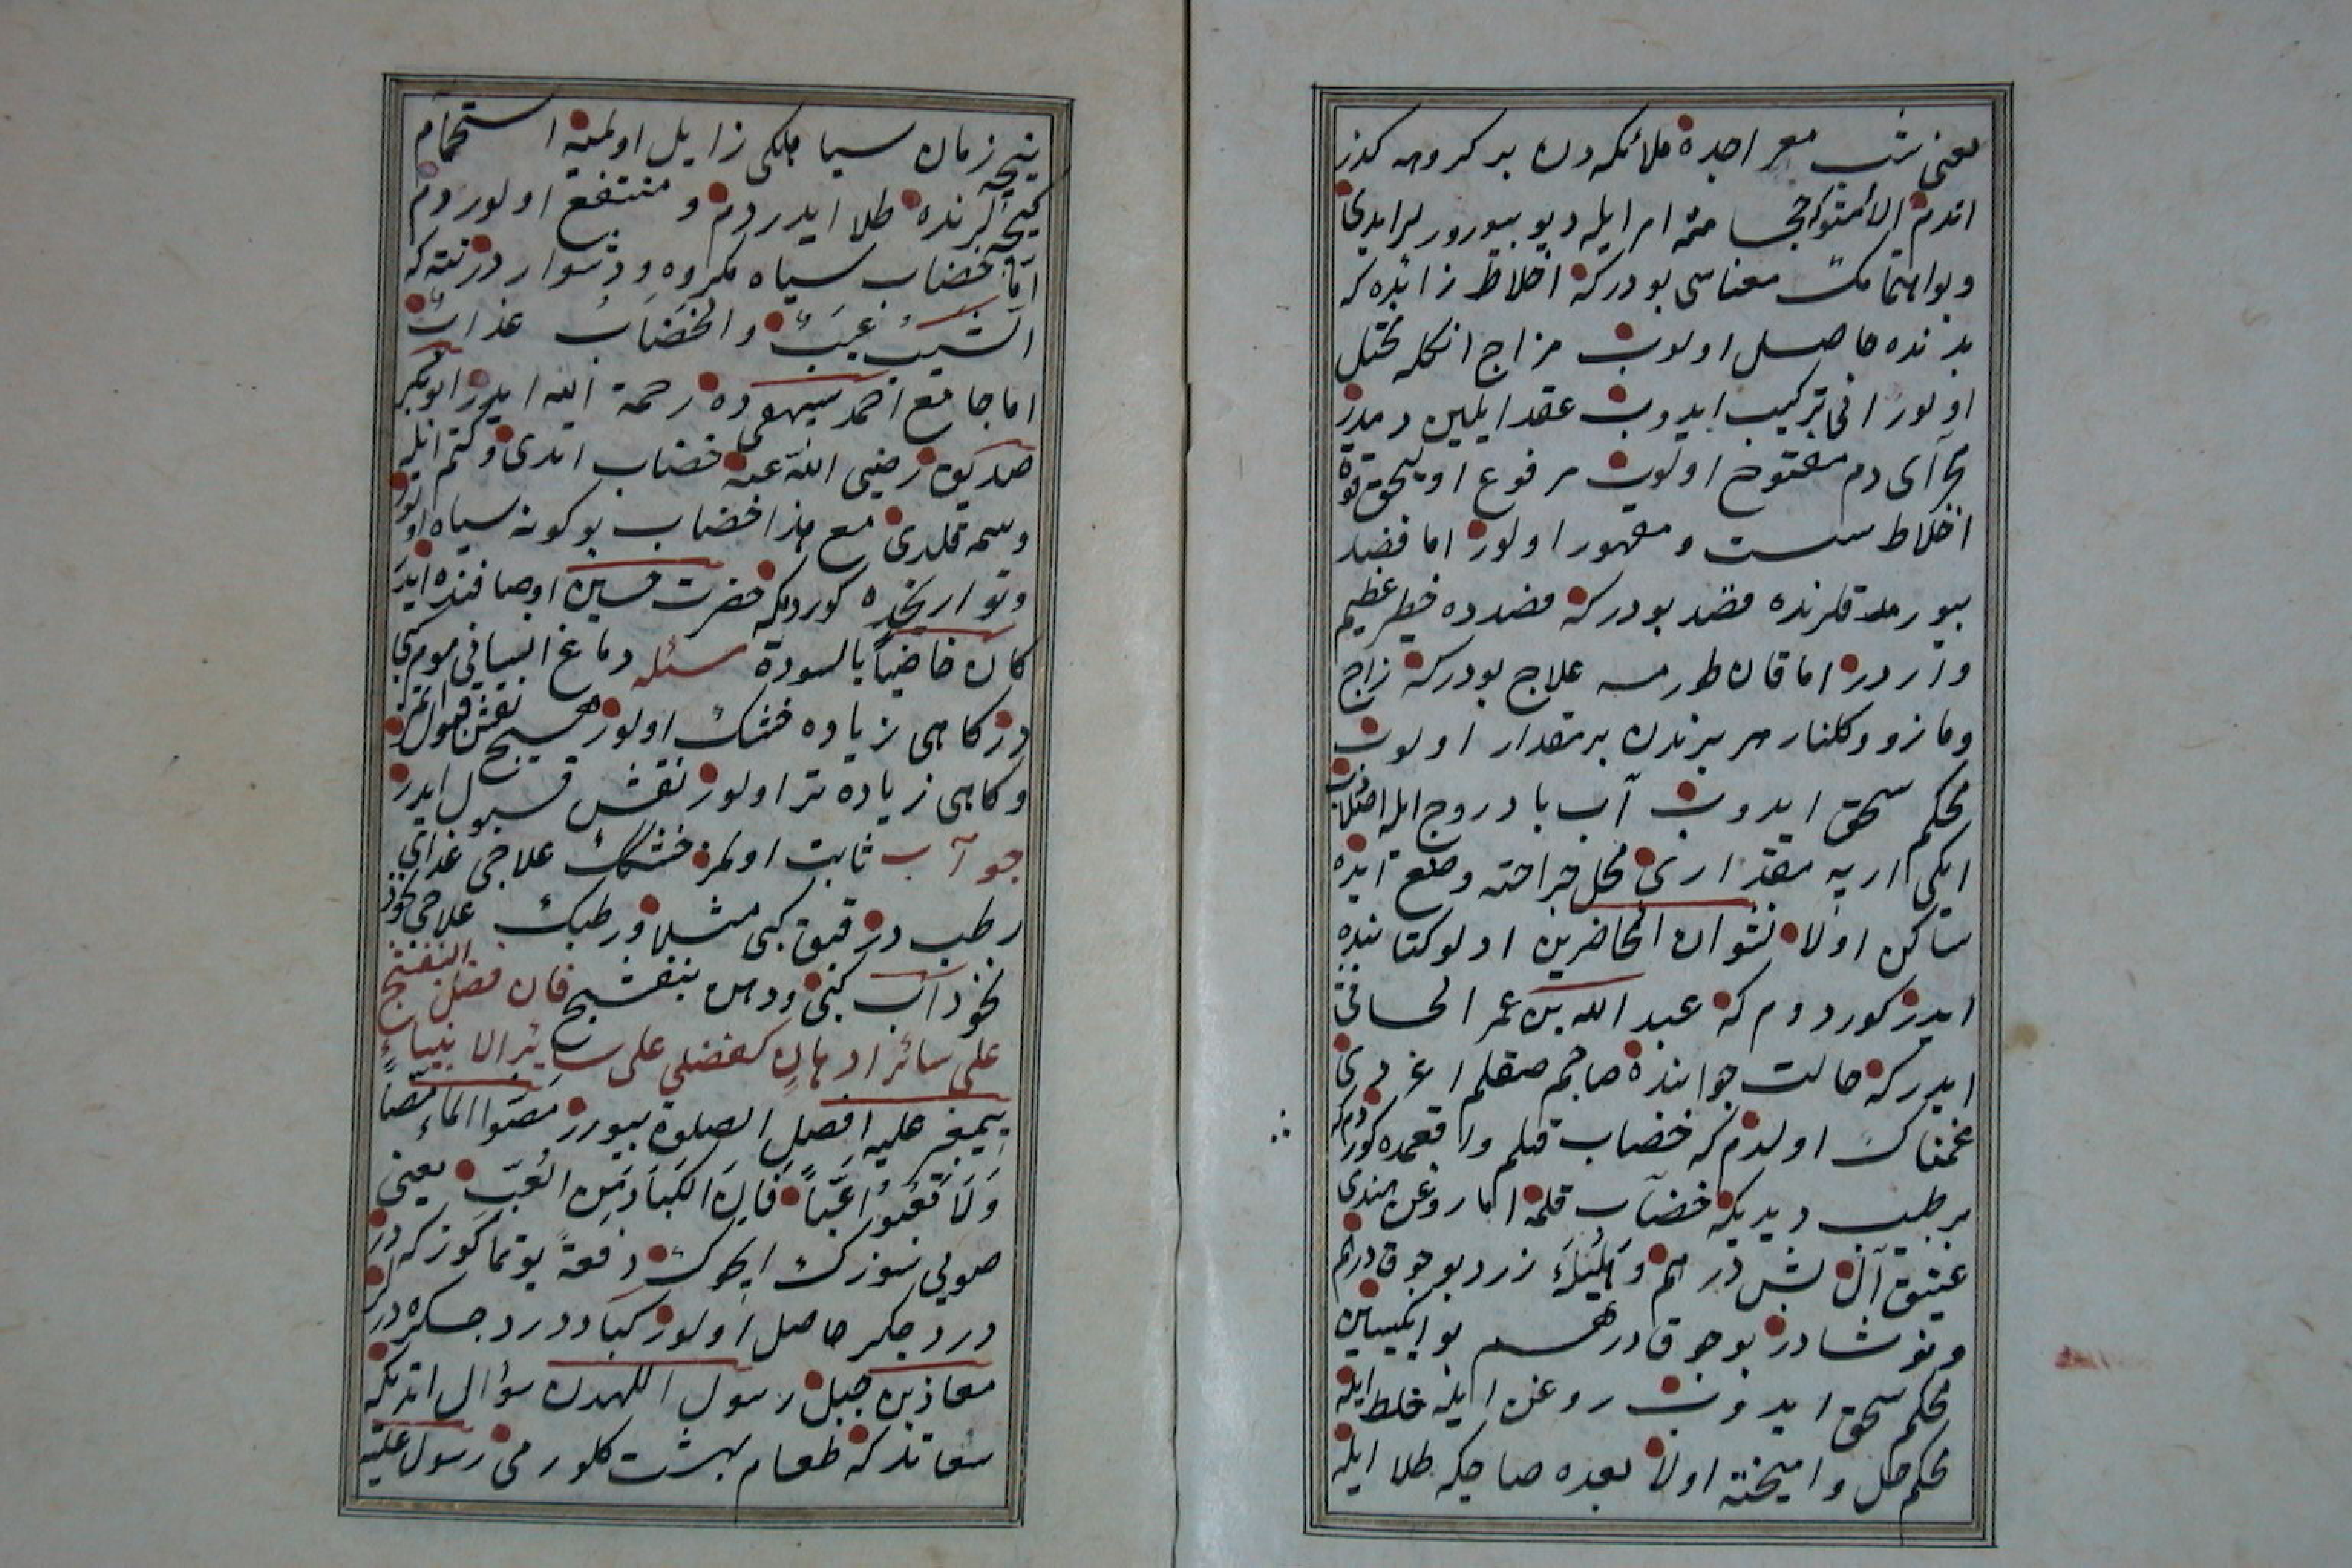 یعنی شب معراجده ملائکه‌دن بر کروهه کذر
اتدم الا امتوك حجامته امر ایله دیو بیوررلر ایدی
وبو اهتمامك معناسی بودرکه اخلاط زائده که
بدنده حاصل اولوب مزاج انکله مختل
اولور انی ترکیب ایدوب عقد ایلین دمدر
مجرای دم مفتوح اولوب مرفوع اولیجق قوة
اخلاط سست ومقهور اولور اما فصد
بیورمدقلرنده قصد بودرکه فصدده خطر عظیم
واردر اما قان طورمسه علاج بودرکه زاج
ومازو وکلنار هر برندن بر مقدار اولوب
محکم سحق ایدوب آب بادروج ایله اصلادب
ایکی اریه مقداری محل جراحته وضع ایده
ساکن اولا نشوان المحاضرین اولو کتابنده
ایدر کوردوم که عبد الله بن عمر الحافی
ایدر که حالت جوانیده صاجم صقلم اغردی
غمناك اولدم که خضاب قیلم واقعمده کوردم که
بر طبیب دیدیکه خضاب قلمه اما روغن هندی
عتیق آل بش درهم وهلیله زرد بوجوق درهم
ونوشادر بوجوق درهم بو ایکیسین
محکم سحق ایدوب روغن ایله خلط ایله
محکم حل وامیخته اولا بعده صاجکه طلا ایله
نیجه زمان سیاهلکی زایل اولمیه استحمام
کیجه‌لرنده طلا ایدردم ومنتفع اولوردم
اما خضاب سیاه مکروه ودشواردر نته که
الشیب عیب والخضاب عذاب
اما جامع احمد بیهقیده رحمة الله ایدر ابوبکر
صدیق رضی الله عنه خضاب اتدی وکتم ایله
وسمه قلدی مع هذا خضاب بو کونه سیاه اولور
وتواریخده کوردمکه حضرت حسین اوصافنده ایدر
کان خاضبا بالسودة سئله دماغ انسانی موم کبی
در کاهی زیاده خشك اولور هیچ نقش قبول اتمز
وکاهی زیاده تر اولور نقش قبول ایدر
جوآب ثابت اولمز خشکك علاجی غذای
رطب در قبق کبی مثلا ورطبك علاجی نخود
نخوداب کبی ودهن بنفشج فان فضل البنفشج
علی سائر ادهان کفضلی علی سائر الانبیاء
پیغمبر علیه افضل الصلوة بیورر مصوا الماء مصا
وَلَا تَعُبُّوا عَبّاً فَاِنَّ الكُبَادَ مِنَ العَبّ یعنی
صویی سوزرك ایچوك دفعة یوتماکوز که در
درد جکر حاصل اولور کباد درد جکره درلر
معاذ بن جبل رسول اللهدن سؤال اتدیکه
سقاتدر که طعام بهشت کلورمی رسول علیه